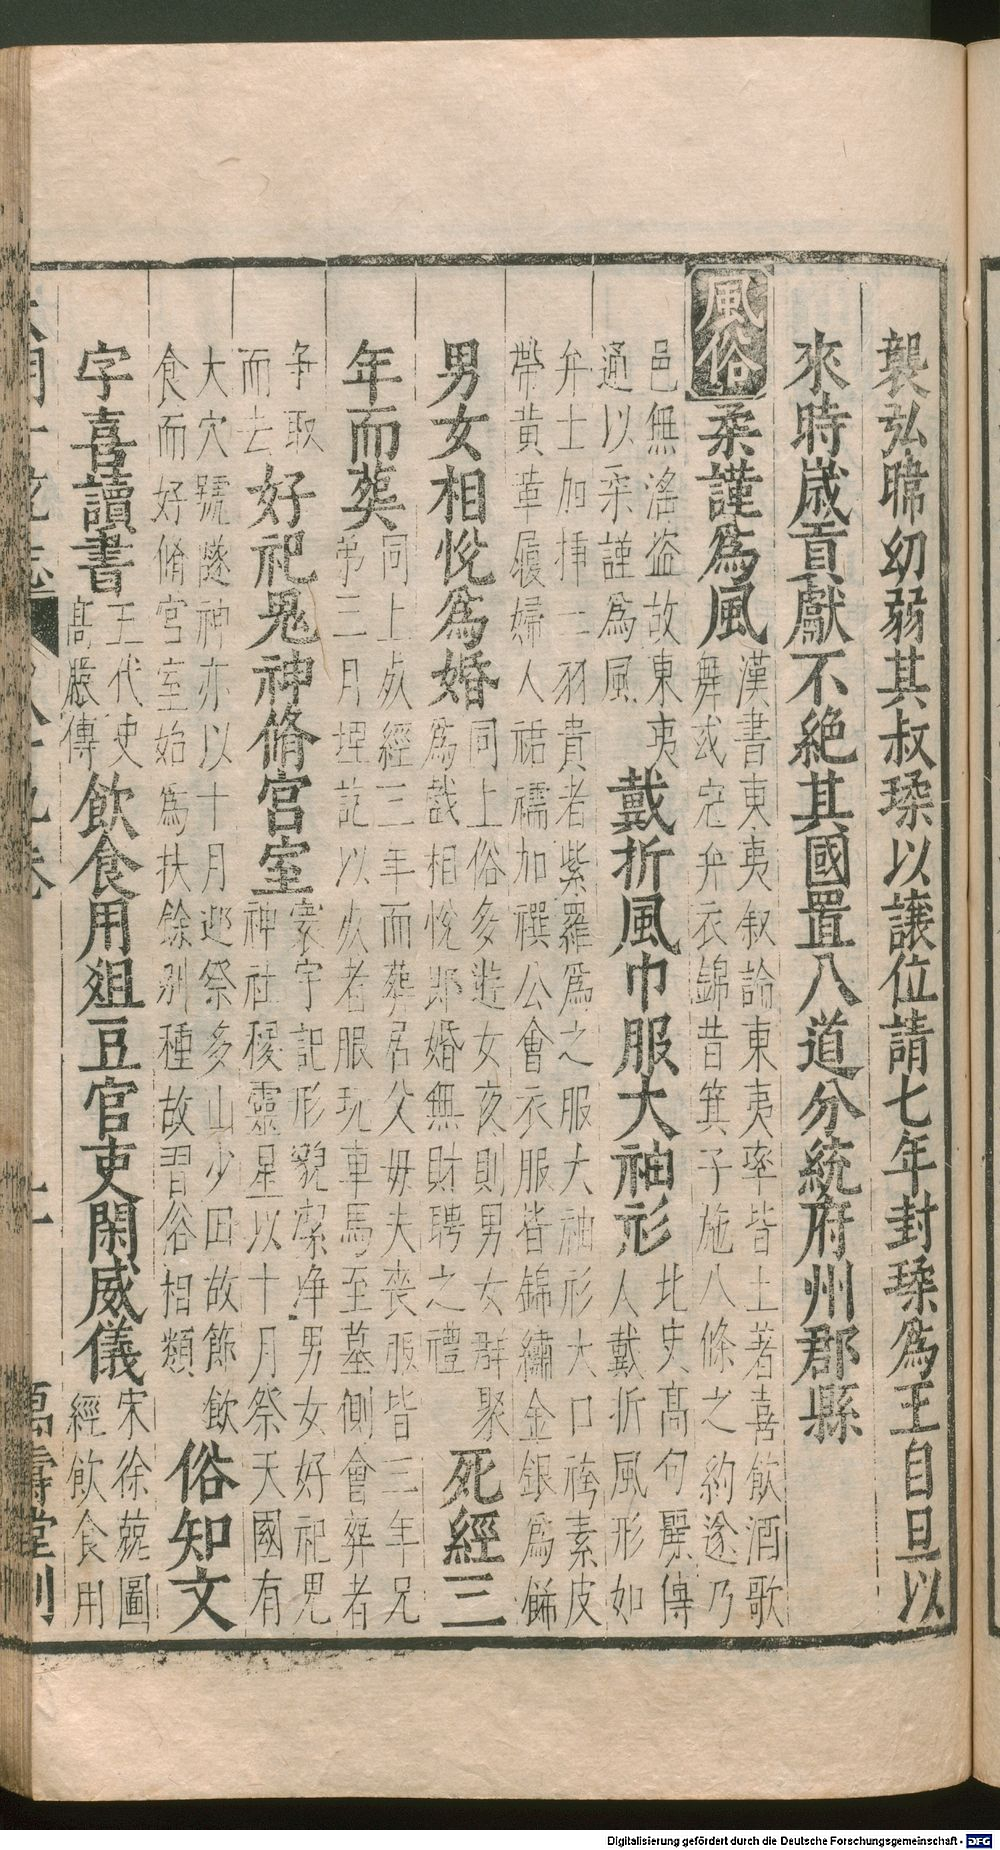 襲弘暐幼弱其叔瑈以讓位請七年封瑈爲王自旦以
來時歲貢獻不絕其國置八道分統府州郡縣
風俗
柔謹爲風
漢書東夷叙論東夷率皆土著喜飲酒歌
舞或冠弁衣錦昔箕子施八條之約遂乃
邑無淫盜故東夷
通以柔謹爲風
戴折風巾服大袖衫
北史高句麗傳
人戴折風形如
弁士加揷二羽貴者紫羅爲之服大袖衫大口袴素皮
帶黃革履婦人裙襦加襈公會衣服皆錦繡金銀爲餙
男女相悅爲婚
同上俗多遊女亥則男女群聚
爲戲相悅卽婚無財聘之禮
死經三
年而葬
同上死經三年而葬居父母夫喪服皆三年兄
弟三月埋訖以死者服玩車馬至墓側會葬者
爭取
而去
好祀鬼神脩宮室
寰宇記形貌潔淨男女好祀鬼
神社稷靈星以十月祭天國有
大穴號隧神亦以十月迎祭多山少田故節飲
食而好脩宮室始爲扶餘別種故習俗相類
俗知文
字喜讀書
五代史
高麗傳
飲食用俎豆官吏閑威儀
宋徐兢圖
經飲食用
大明一統志
八十九卷
萬壽堂刊
Digitalisierung gefördert durch die Deutsche Forschungsgemeinschaft - DFG